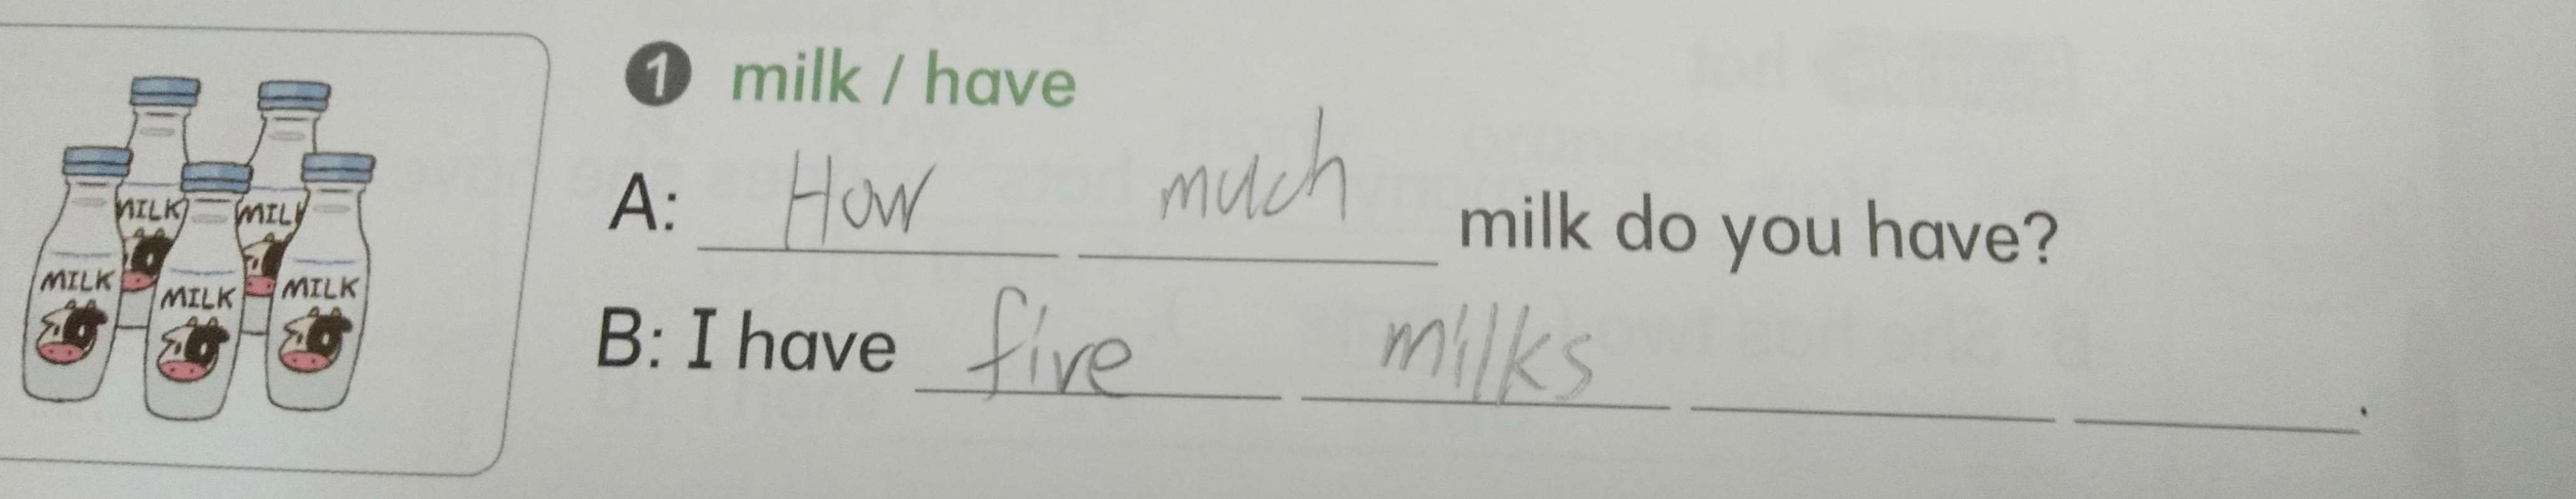 1 milk / have
A: How much milk do you have?
B: I have five milks.
MILK
MILK
MILK
MILK
MILK